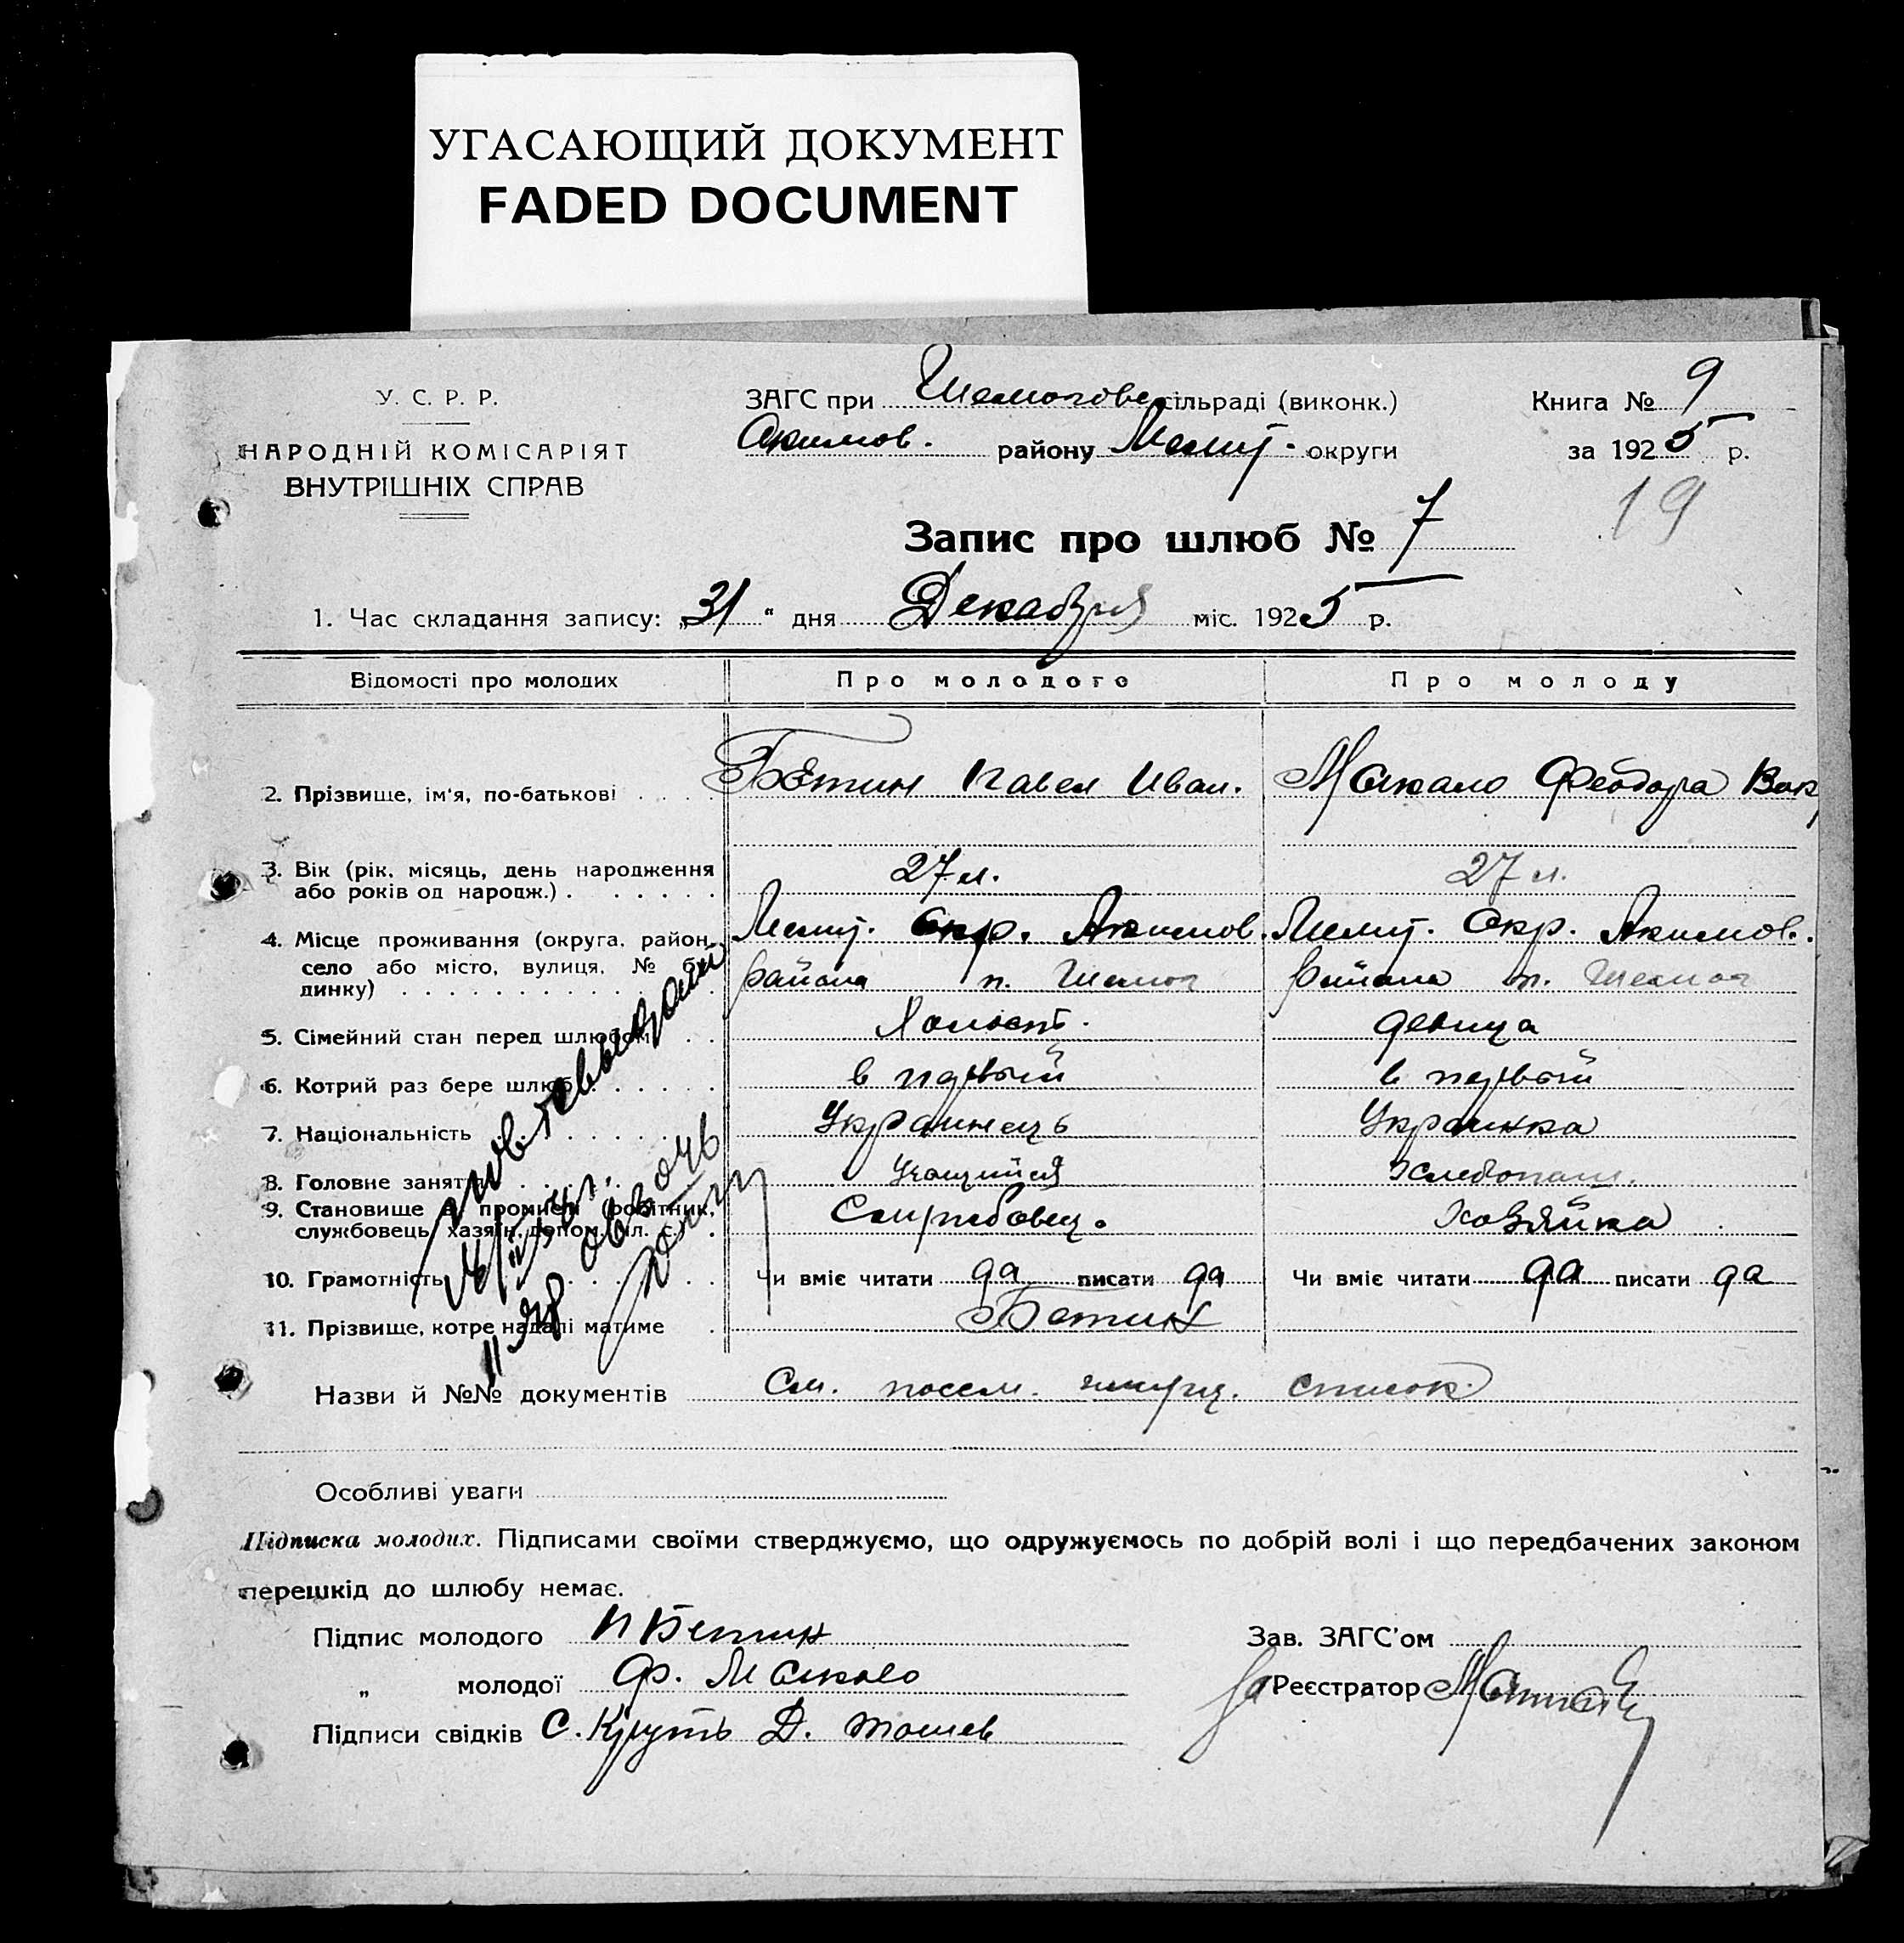 УГАСАЮЩИЙ ДОКУМЕНТ
FADED DOCUMENT
У. С. Р. Р.
НАРОДНІЙ КОМІСАРІЯТ
ВНУТРІШНІХ СПРАВ
ЗАГС при сільраді (виконк.)
Акимов. району Мелит. округи
Книга № 9
за 1925 р.
19
Запис про шлюб № 7
1. Час складання запису: „31“ дня Декабря міс. 1925 р.
Відомості про молодих Про молодого Про молоду
2. Прізвище, ім'я, по-батькові . . . . Бетин Павел Иван. Макало Феодора Вак
3. Вік (рік, місяць, день народження
або років од народж.) . . . . . . 27 л. 27 л.
4. Місце проживання (округа, район, Мелит. Окр. Акимов. Мелит. Окр. Акимов.
село або місто, вулиця, № бу- района п. района п.
динку) . . . . . . . . . . . . .
5. Сімейний стан перед шлюбом . . Холост. девица
6. Котрий раз бере шлюб . . . . . в первый в первый
7. Національність . . . . . . . Украинець Украинка
8. Головне заняття . . . . . . Учащийся Хлебопаш.
9. Становище в промислі (робітник,
службовець, хазяїн, допом. чл. с.) . Хозяйка
10. Грамотність . . . . . . . Чи вміє читати да писати да Чи вміє читати да писати да
11. Прізвище, котре надалі матиме . Бетин
Назви й №№ документів См. посем. список.
Особливі уваги
Підписка молодих. Підписами своїми стверджуємо, що одружуємось по добрій волі і що передбачених законом
перешкід до шлюбу немає.
Підпис молодого П Бетин
„ молодої Ф. Макало
Підписи свідків С. Круть Д.
Зав. ЗАГС'ом
за Реєстратор